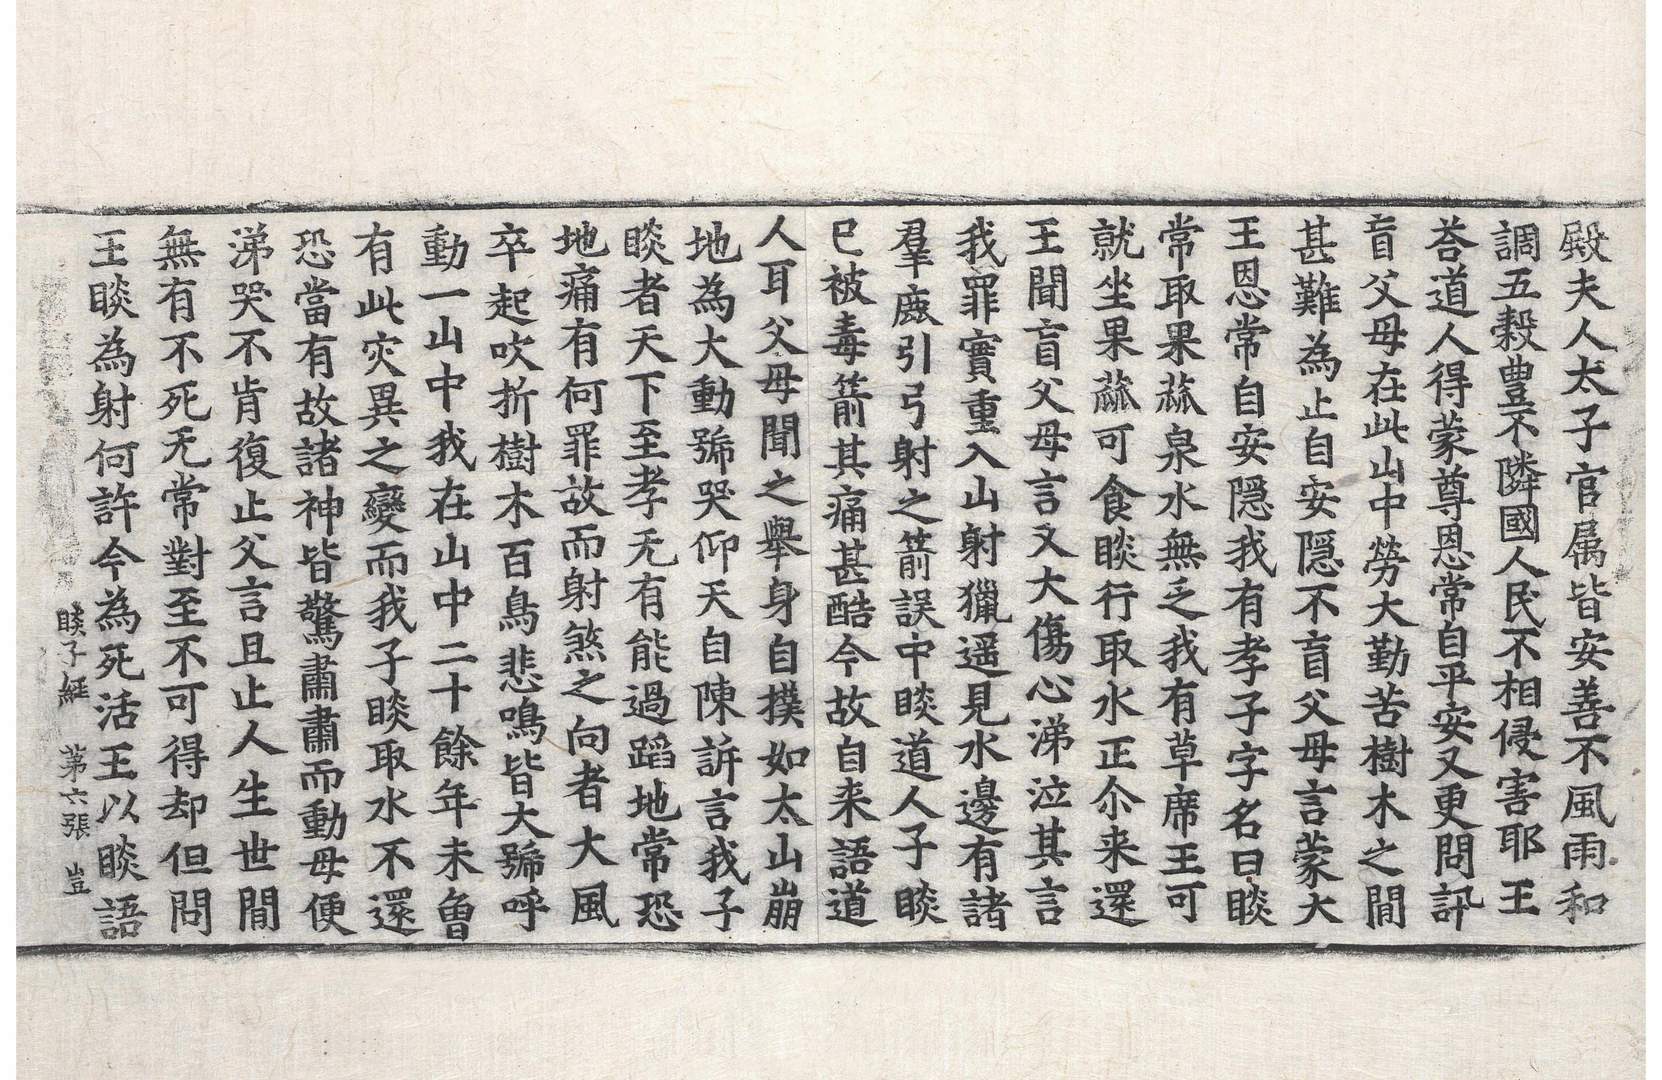 殿夫人太子官属皆安善不風雨和
調五穀豊不隣國人民不相侵害耶王
荅道人得蒙尊恩常自平安又更問訊
盲父母在此山中勞大勤苦樹木之間
甚難為止自安隠不盲父母言蒙大
王恩常自安隠我有孝子字名曰睒
常取果蓏泉水無乏我有草席王可
就坐果蓏可食睒行取水正尒来還
王聞盲父母言又大傷心涕泣其言
我罪實重入山射獵遥見水邊有諸
羣鹿引弓射之箭誤中睒道人子睒
已被毒箭其痛甚酷今故自来語道
人耳父母聞之舉身自撲如太山崩
地為大動號哭仰天自陳訴言我子
睒者天下至孝无有能過蹈地常恐
地痛有何罪故而射煞之向者大風
卒起吹折樹木百鳥悲鳴皆大號呼
動一山中我在山中二十餘年未曾
有此灾異之變而我子睒取水不還
恐當有故諸神皆驚肅肅而動母便
涕哭不肯復止父言且止人生世間
無有不死无常對至不可得却但問
王睒為射何許今為死活王以睒語
睒子経 第六張 豈